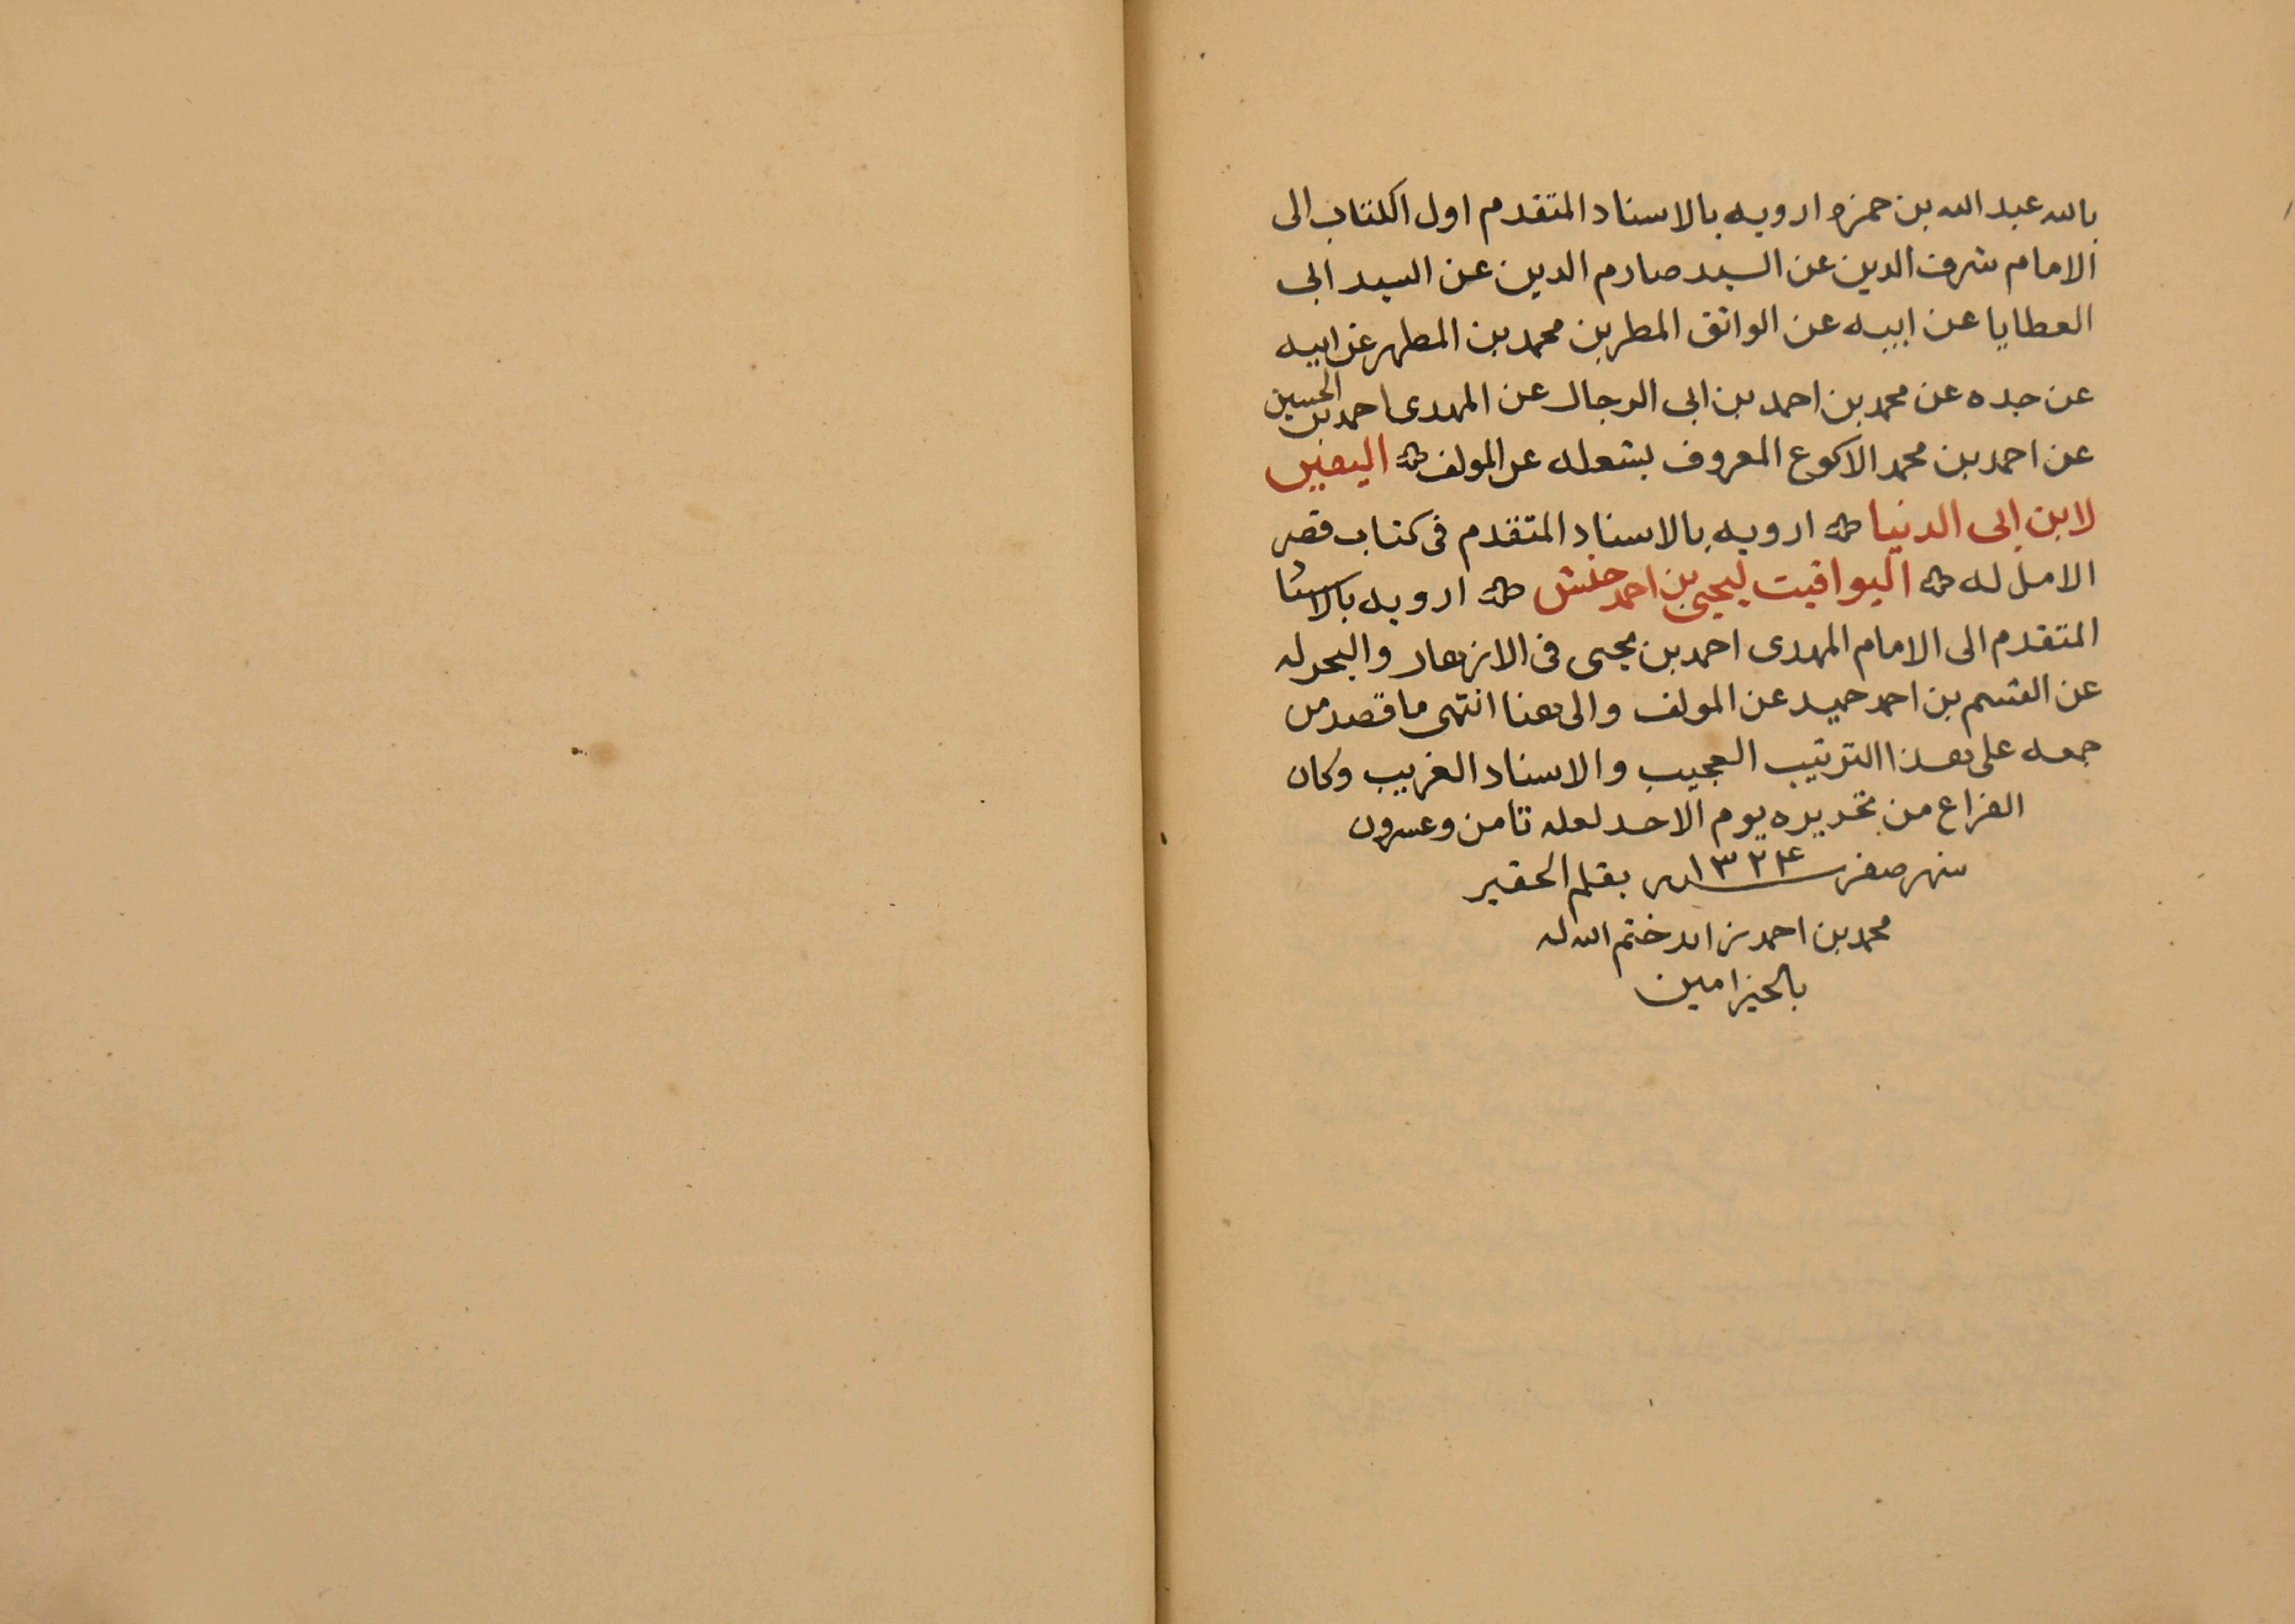 بالله عبد الله بن حمزه ارويه بالاسناد المتقدم اول الكتاب الى
الامام شرف الدين عن السيد صارم الدين عن السيد ابي
العطايا عن ابيه عن الواثق المطهر بن محمد بن المطهر عن ابيه
عن جده عن محمد بن احمد بن ابي الرجال عن المهدى احمد بن الحسين
عن احمد بن محمد الاكوع المعروف بشعله عن المولف اليقين
لابن ابى الدنيا ارويه بالاسناد المتقدم فى كتاب قصر
الامل له اليواقيت ليحيى بن احمد حنش ارويه بالاسناد
المتقدم الى الامام المهدى احمد بن يحيى فى الازهار والبحر له
عن القسم بن احمد حميد عن المولف والى هنا انتهى ما قصد من
جمعه على هذا الترتيب العجيب والاسناد الغريب وكان
الفراغ من تحريره يوم الاحد لعله ثامن وعشرون
شهر صفر سنه ١٣٢٤ بقلم الحقير
محمد بن احمد زايد ختم الله له
بالخير امين